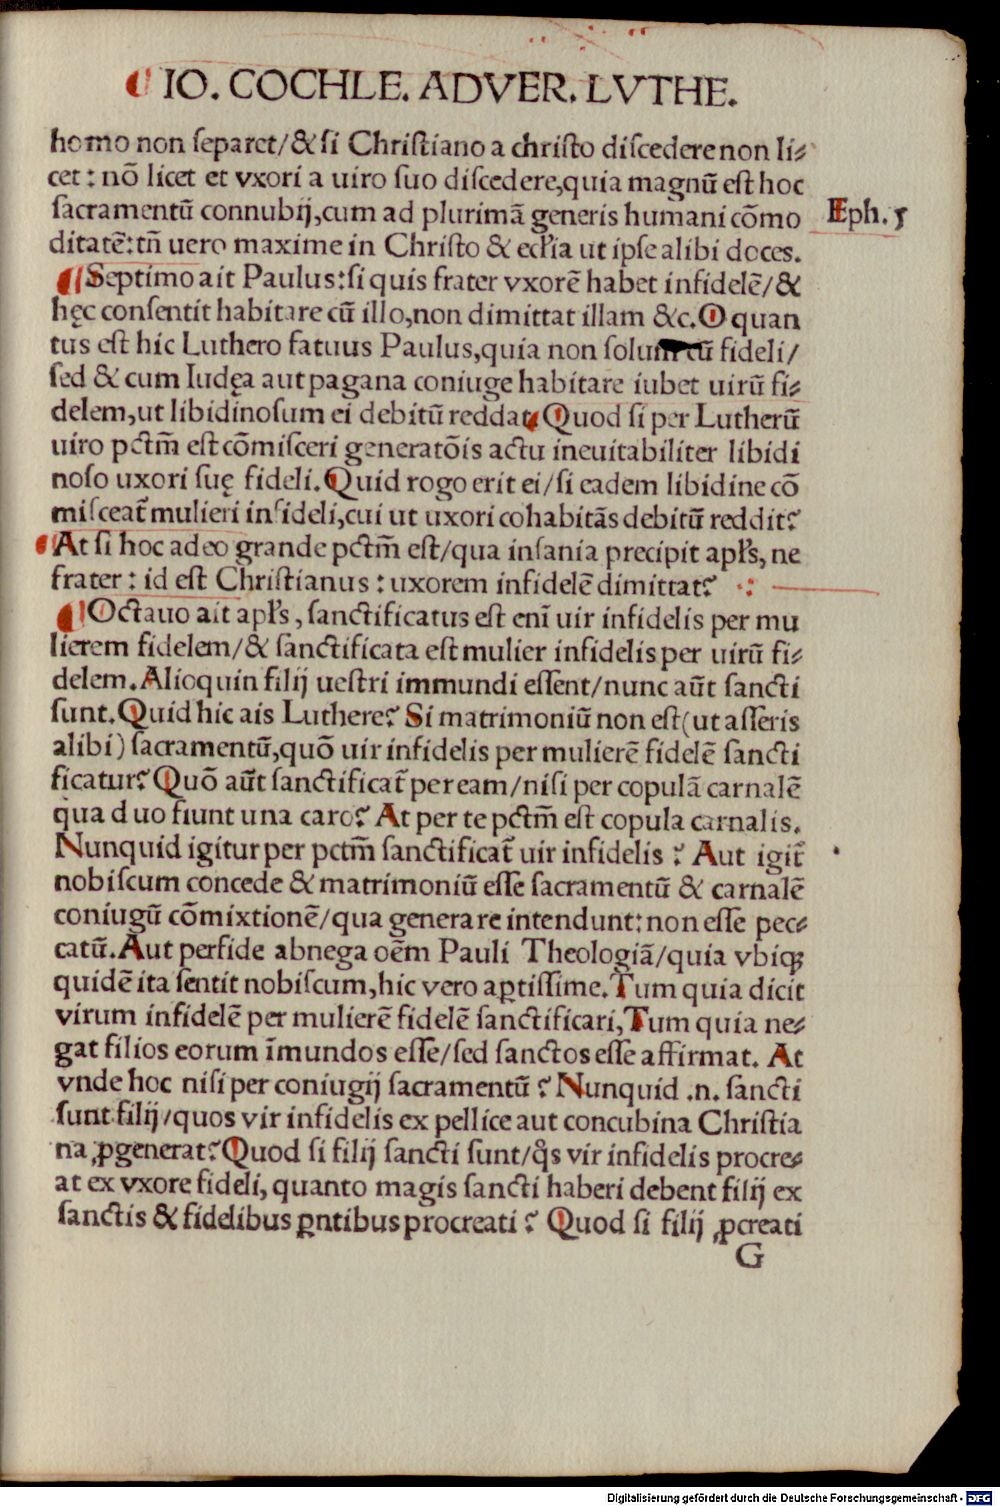 IO. COCHLE. ADVER. LVTHE.
homo non ſeparet/& ſi Chriſtiano a chriſto diſcedere non li⸗
cet: nõ licet et vxori a uiro ſuo diſcedere,quia magnũ eſt hoc
ſacramentũ connubij,cum ad plurimã generis humani cõmo
Eph. 5
ditatẽ: tñ uero maxime in Chriſto & ecľia ut ipſe alibi doces.
¶Septimo ait Paulus: ſi quis frater vxorẽ habet infidelẽ/&
hęc conſentit habitare cũ illo,non dimittat illam &c. O quan
tus eſt hic Luthero fatuus Paulus,quia non ſolum cũ fideli/
ſed & cum Iudęa aut pagana coniuge habitare iubet uirũ fi⸗
delem,ut libidinoſum ei debitũ reddat. Quod ſi per Lutherũ
uiro pctm̃ eſt cõmiſceri generatõis actu ineuitabiliter libidi
noſo uxori ſuę fideli. Quid rogo erit ei/ſi eadem libidine cõ
miſceat᷑ mulieri infideli,cui ut uxori cohabitãs debitũ reddit?
At ſi hoc adeo grande pctm̃ eſt/qua inſania precipit apľs, ne
frater: id eſt Chriſtianus: uxorem infidelẽ dimittat?
¶Octauo ait apľs, ſanctificatus eſt enĩ uir infidelis per mu
lierem fidelem/& ſanctificata eſt mulier infidelis per uirũ fi⸗
delem. Alioquin filij ueſtri immundi eſſent/nunc aũt ſancti
ſunt. Quid hic ais Luthere? Si matrimoniũ non eſt(ut aſſeris
alibi) ſacramentũ,quõ uir infidelis per mulierẽ fidelẽ ſancti
ficatur? Quõ aũt ſanctificat᷑ per eam/niſi per copulã carnalẽ
qua duo fiunt una caro? At per te pctm̃ eſt copula carnalis.
Nunquid igitur per pctm̃ ſanctificat᷑ uir infidelis? Aut igit᷑
nobiſcum concede & matrimoniũ eſſe ſacramentũ & carnalẽ
coniugũ cõmixtionẽ/qua generare intendunt: non eſſe pec⸗
catũ. Aut perfide abnega oẽm Pauli Theologiã/quia vbiqꝫ
quidẽ ita ſentit nobiſcum,hic vero aꝑtiſſime. Tum quia dicit
virum infidelẽ per mulierẽ fidelẽ ſanctificari,Tum quia ne⸗
gat filios eorum ĩmundos eſſe/ſed ſanctos eſſe affirmat. At
vnde hoc niſi per coniugij ſacramentũ? Nunquid .n. ſancti
ſunt filij/quos vir infidelis ex pellice aut concubina Chriſtia
na ꝓgenerat? Quod ſi filij ſancti ſunt/q̃s vir infidelis procre⸗
at ex vxore fideli, quanto magis ſancti haberi debent filij ex
ſanctis & fidelibus ꝑntibus procreati? Quod ſi filij ꝓcreati
G
Digitalisierung gefördert durch die Deutsche Forschungsgemeinschaft - DFG